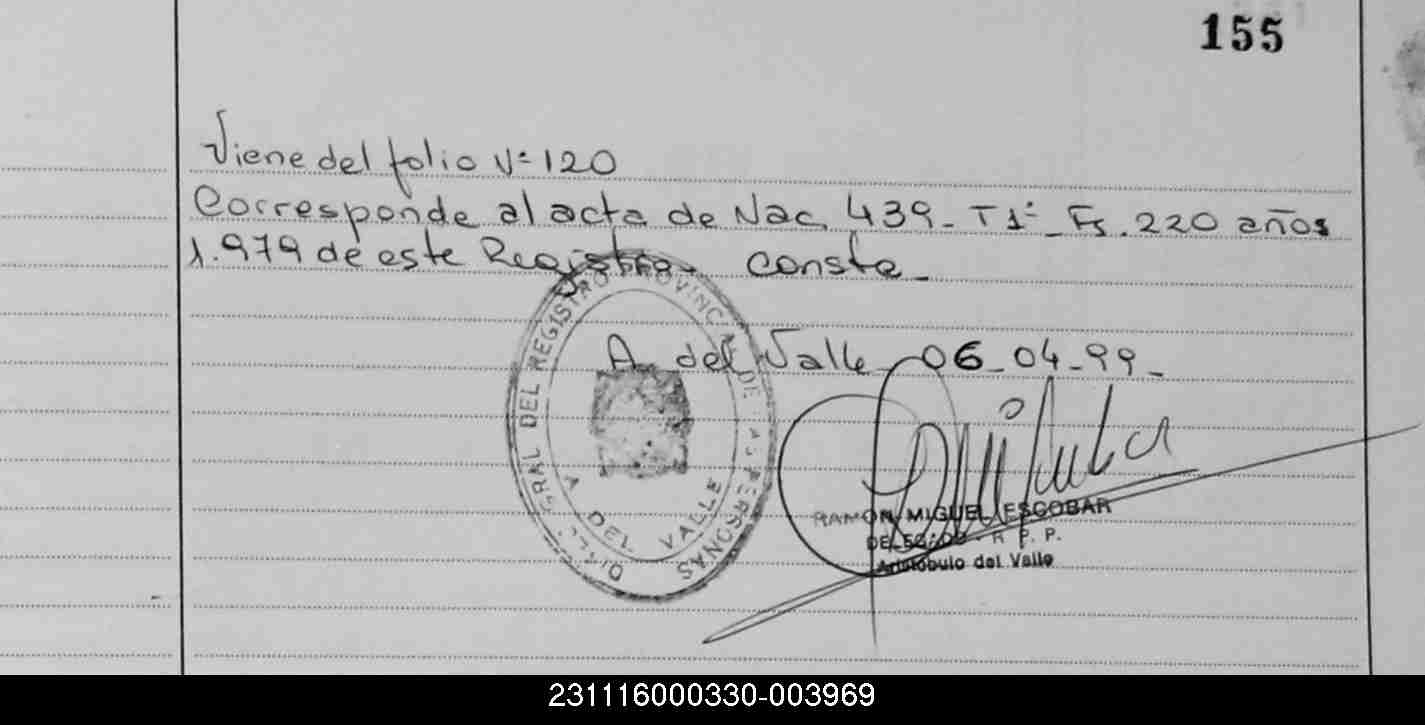 155
Viene del folio Nº 120
Corresponde al acta de Nac. 439_ T1º_ Fs. 220 años
1.979 de este Registro. Conste_
A. del Valle 06_04_99_
DIRECC. GRAL DEL REGISTRO PROVINCIAL DE LAS PERSONAS
A. DEL VALLE
RAMON MIGUEL ESCOBAR
DELEGADO - R. P. P.
Aristóbulo del Valle
231116000330-003969